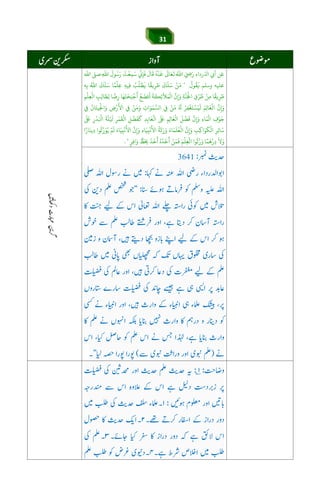 31
موضوع
آواز
سکرین سمری
عَنِ أَبِي الدَّرْدَاءِ رَضِيَ اللهُ تَعَالَى عَنْهُ قَالَ فَإِنِّي سَمِعْتُ رَسُولَ اللهِ صلى الله
عليه وسلم يَقُولُ " مَنْ سَلَكَ طَرِيقًا يَطْلُبُ فِيهِ عِلْمًا سَلَكَ اللهُ بِهِ
طَرِيقًا مِنْ طُرُقِ الْجَنَّةِ وَإِنَّ الْمَلاَئِكَةَ لَتَضَعُ أَجْنِحَتَهَا رِضًا لِطَالِبِ الْعِلْمِ
وَإِنَّ الْعَالِمَ لَيَسْتَغْفِرُ لَهُ مَنْ فِي السَّمَوَاتِ وَمَنْ فِي الأَرْضِ وَالْحِيتَانُ فِي
جَوْفِ الْمَاءِ وَإِنَّ فَضْلَ الْعَالِمِ عَلَى الْعَابِدِ كَفَضْلِ الْقَمَرِ لَيْلَةَ الْبَدْرِ عَلَى
سَائِرِ الْكَوَاكِبِ وَإِنَّ الْعُلَمَاءَ وَرَثَةُ الأَنْبِيَاءِ وَإِنَّ الأَنْبِيَاءَ لَمْ يُوَرِّثُوا دِينَارًا
وَلاَ دِرْهَمًا وَرَّثُوا الْعِلْمَ فَمَنْ أَخَذَهُ أَخَذَ بِحَظٍّ وَافِرٍ " .
حدیث نمبر: 3641
ابوالدرداء رضی اللہ عنہ نے کہا: میں نے رسول اللہ صلی
اللہ علیہ وسلم کو فرماتے ہوئے سنا: "جو شخص علم دین کی
تلاش میں کوئی راستہ چلے اللہ تعالیٰ اس کے لیے جنت کا
راستہ آسان کر دیتا ہے، اور فرشتے طالب علم سے خوش
ہو کر اس کے لیے اپنے بازو بچھا دیتے ہیں، آسمان و زمین
کی ساری مخلوق یہاں تک کہ مچھلیاں بھی پانی میں طالب
علم کے لیے مغفرت کی دعا کرتی ہیں، اور عالم کی فضیلت
عابد پر ایسی ہی ہے جیسے چاند کی فضیلت سارے ستاروں
پر، بیشک علماء ہی انبیاء کے وارث ہیں، اور انبیاء نے کسی
کو دینار و درہم کا وارث نہیں بنایا بلکہ انہوں نے علم کا
وارث بنایا ہے، لہٰذا جس نے اس علم کو حاصل کیا، اس
نے (علم نبوی اور وراثت نبوی سے) پورا پورا حصہ لیا"۔
وضاحت: 1: یہ حدیث علم حدیث اور محدثین کی فضیلت
پر زبردست دلیل ہے اس کے علاوہ اس سے مندرجہ
باتیں اور معلوم ہوئیں: ۱۔ علماء سلف حدیث کی طلب میں
دور دراز کے اسفار کرتے تھے۔ ۲۔ ایک حدیث کا حصول
اس لائق ہے کہ دور دراز کا سفر کیا جائے۔ ۳۔ علم کی
طلب میں اخلاص شرط ہے۔ ۴۔ دنیوی غرض کو طلب علم